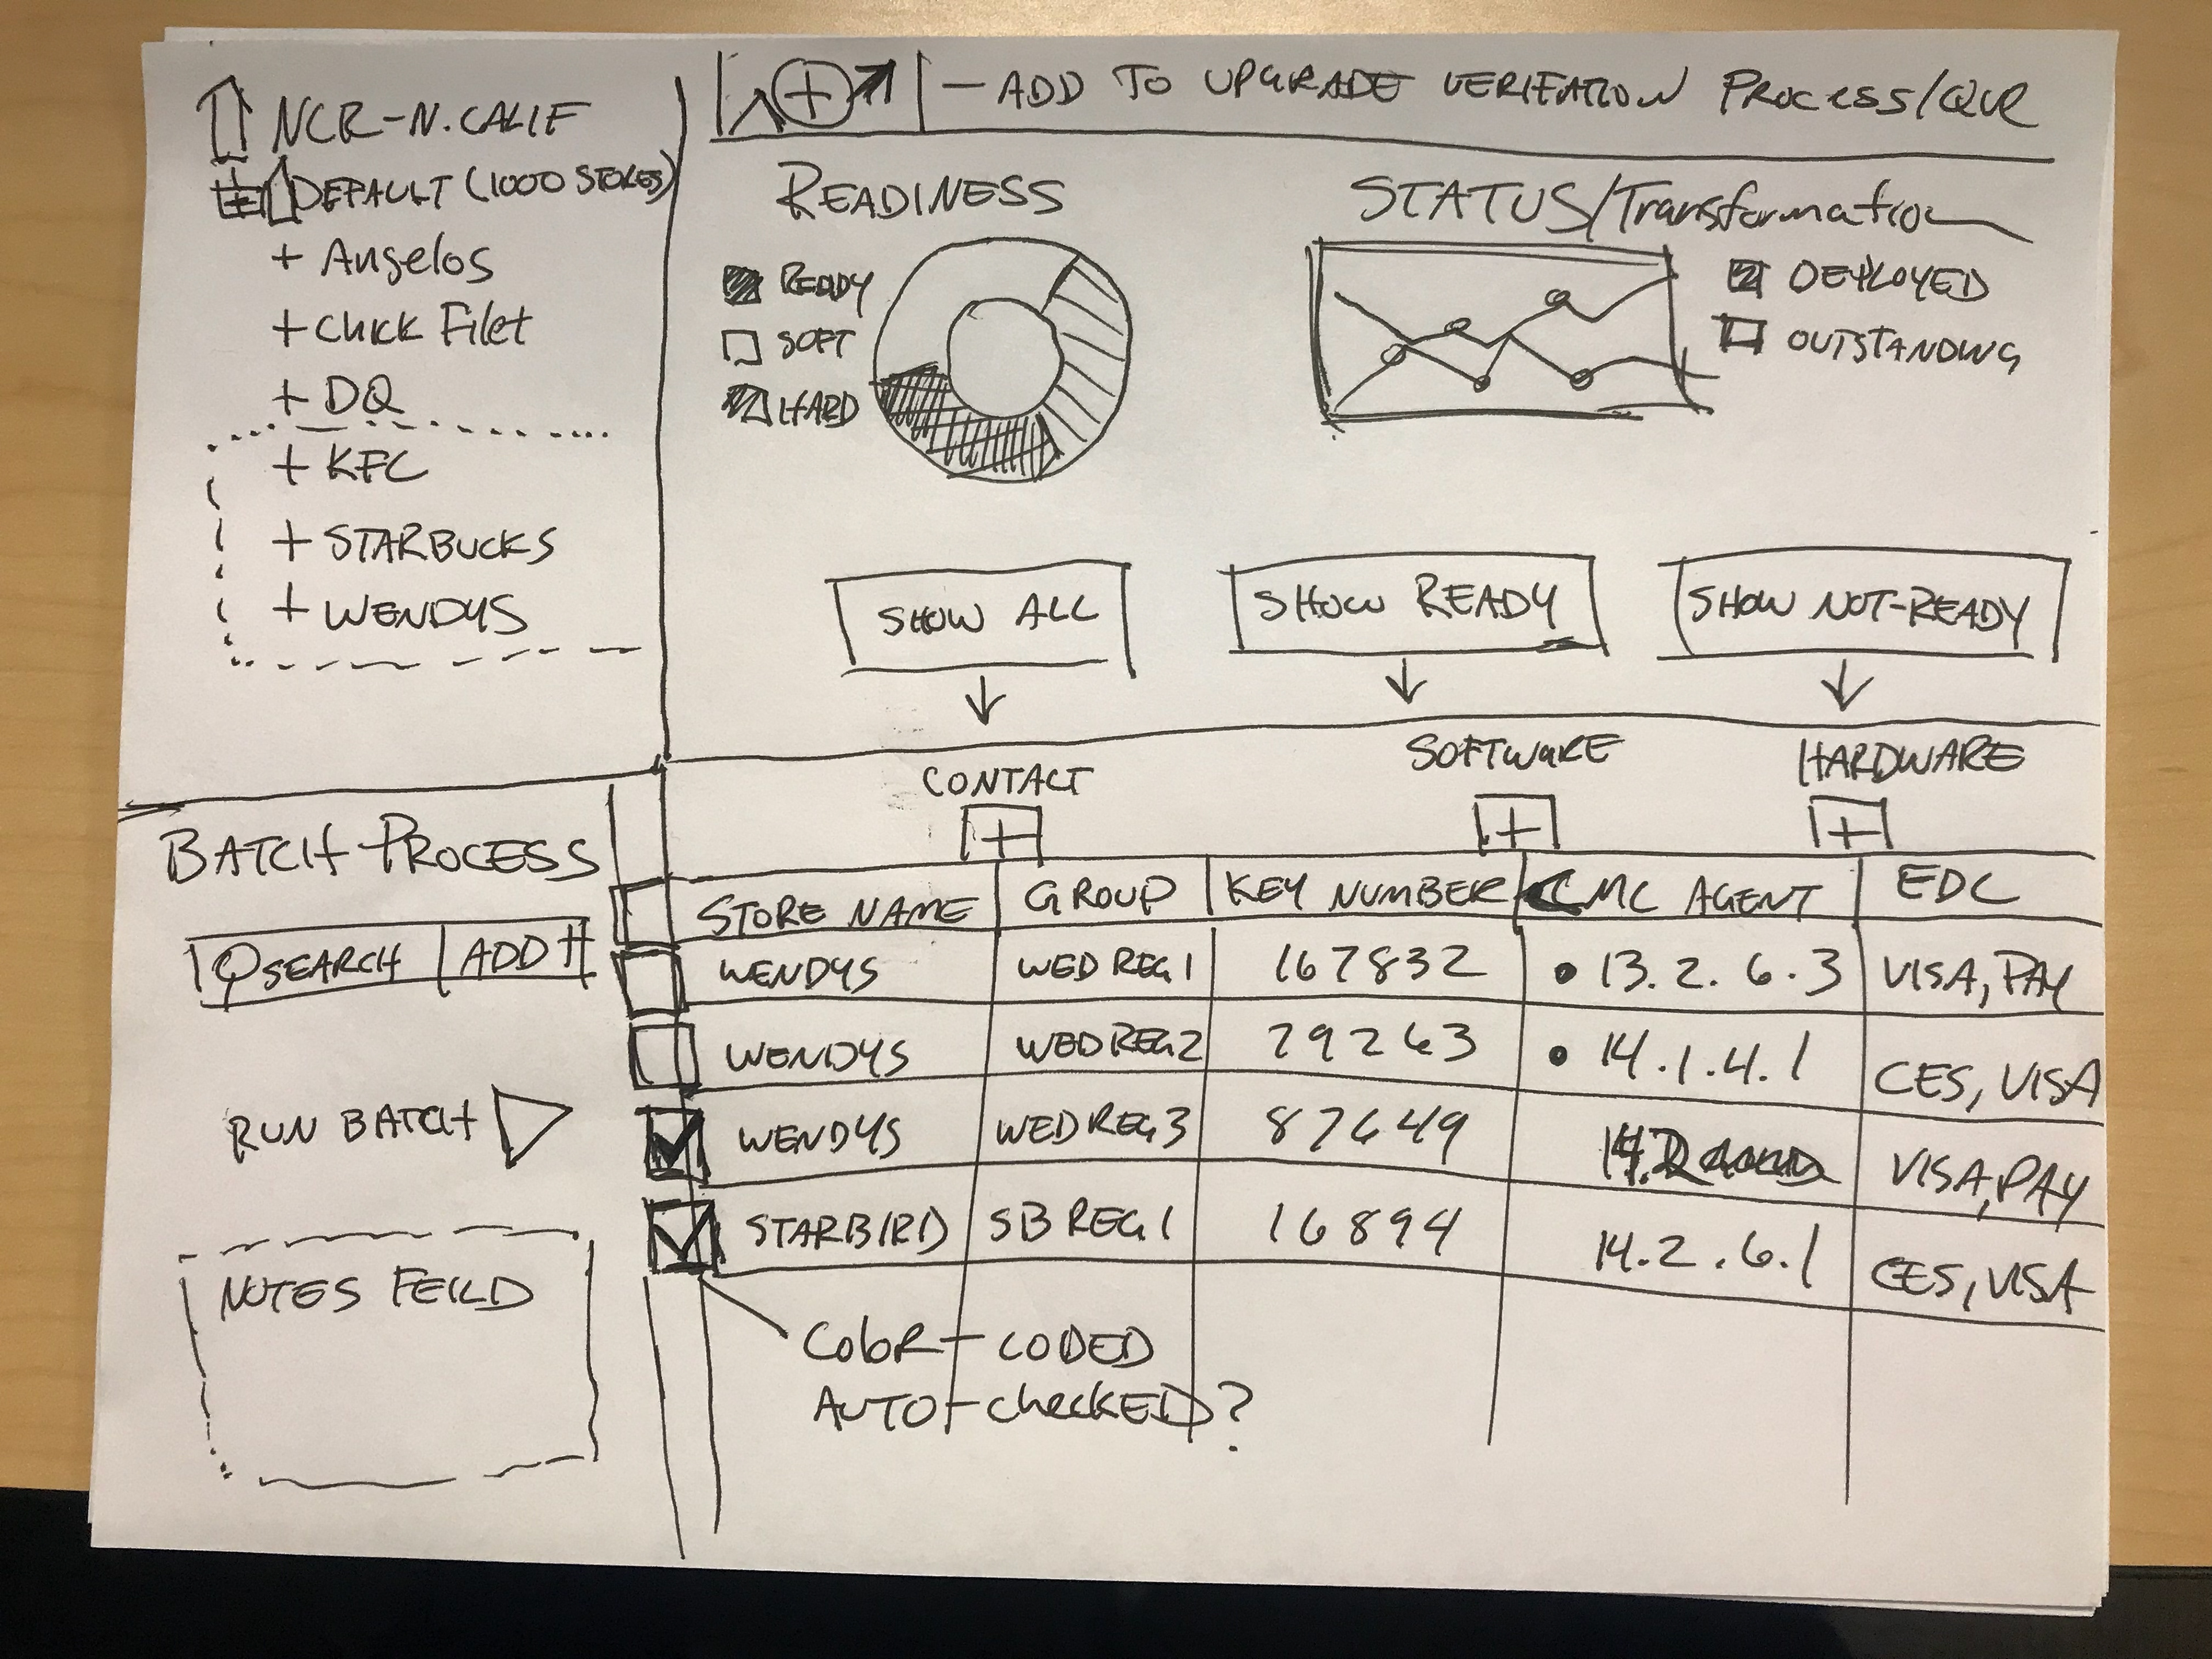 NCR-N.CALIF
DEFAULT (1000 STORES)
+ Angelos
+ Chick Filet
+ DQ
+ KFC
+ STARBUCKS
+ WENDYS
+ — ADD TO UPGRADE VERIFATION PROCESS/QUR
READINESS
READY
SOFT
HARD
STATUS/Transformation
DEPLOYED
OUTSTANDING
SHOW ALL
SHOW READY
SHOW NOT-READY
CONTACT
SOFTWARE
HARDWARE
+ + +
BATCH PROCESS
SEARCH ADD
RUN BATCH
NOTES FEILD
STORE NAME GROUP KEY NUMBER CMC AGENT EDC
WENDYS WED REG1 167832 • 13.2.6.3 VISA, PAY
WENDYS WED REG2 79263 • 14.1.4.1 CES, VISA
WENDYS WED REG3 87649 VISA, PAY
STARBIRD SB REG1 16894 14.2.6.1 CES, VISA
COLOR-CODED
AUTO-CheckED?